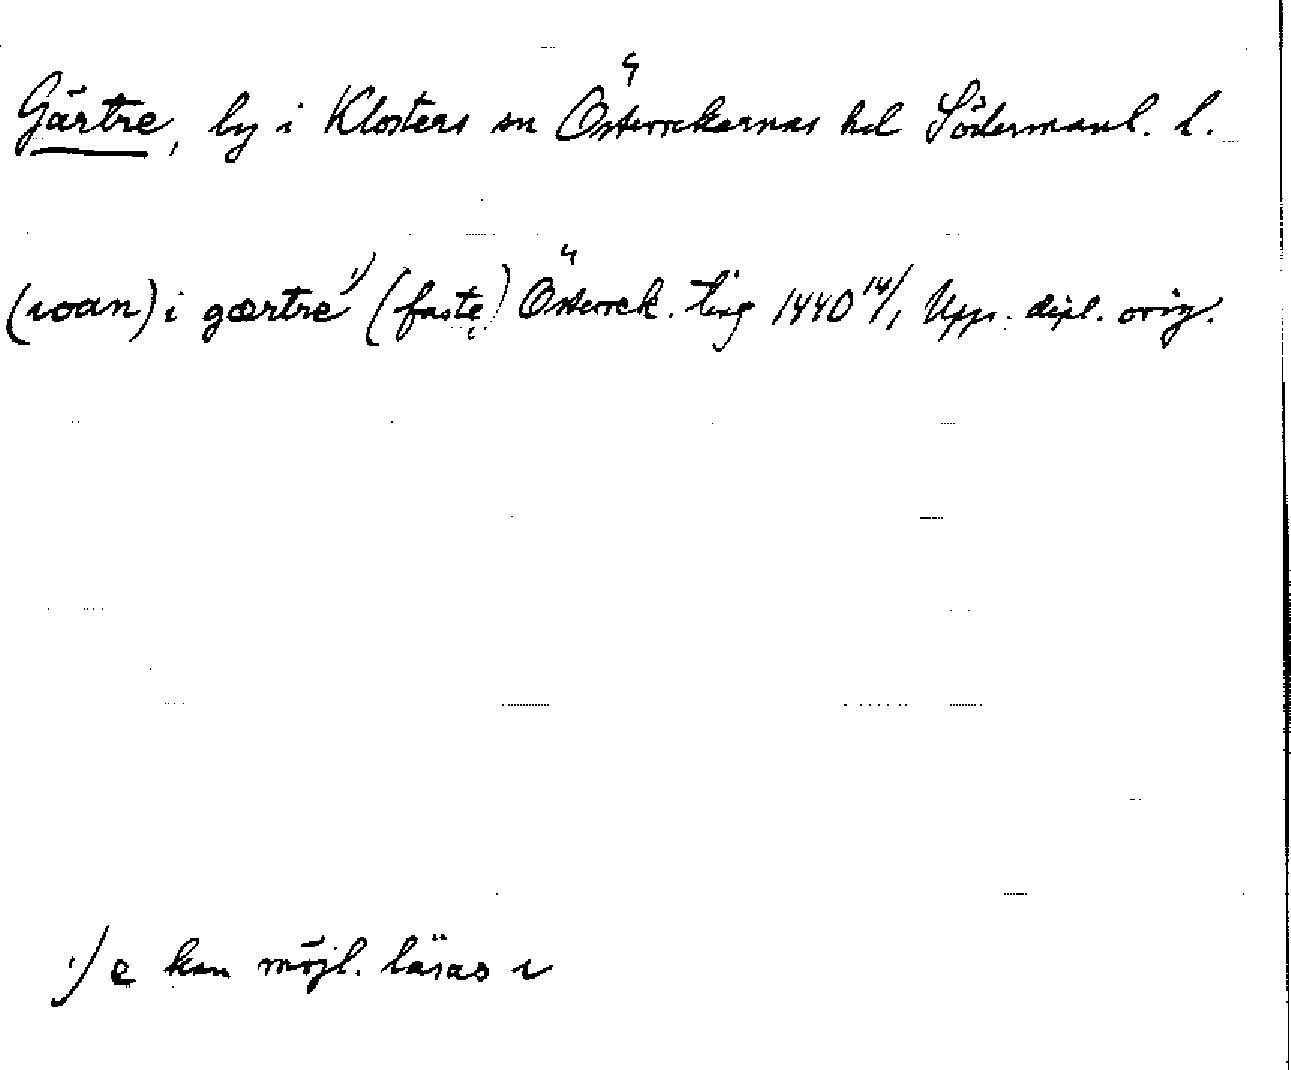 Gärtre, by i Klosters sn Österrekarnas hd Södermanl. l.
(ioan) i gærtre¹⁾ (faste) Österrek. ting 1440 14/1 Upps. dipl. orig.
¹⁾ e kan möjl. läsas i